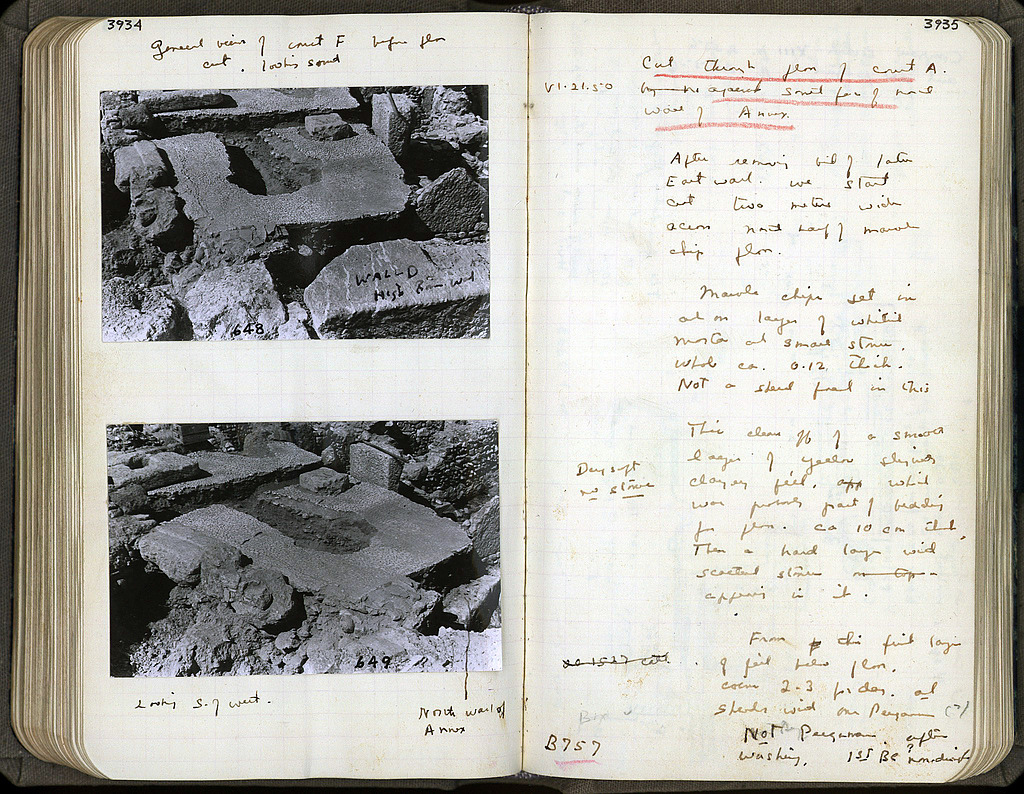 3934
General view of court F before floor
cut. looking south
WALL D
High Brown Wall
648
649
Looking S. of west.
North wall of
Annex
3935
Cut through floor of court A.
VI.21.50
south face of north
wall of Annex.
After removing bit of later
East wall. we start
cut two meters wide
across north half of marble
chip floor.
Marble chips set in
layer of whitish
mortar and small stones.
Whole ca. 0.12 thick.
Not a sherd found in this
This clean off of a smooth
layer of yellow
clayey fill, which
was probably part of bedding
for floor. ca 10 cm thick.
Then a hard layer with
scattered stones
appears in it.
Dug soft
no stones
From this first layer
of fill below floor.
come 2-3 sherds and
sherds with one Pergamene (?)
Not Pergamene after
washing. 1st BC ?
B757